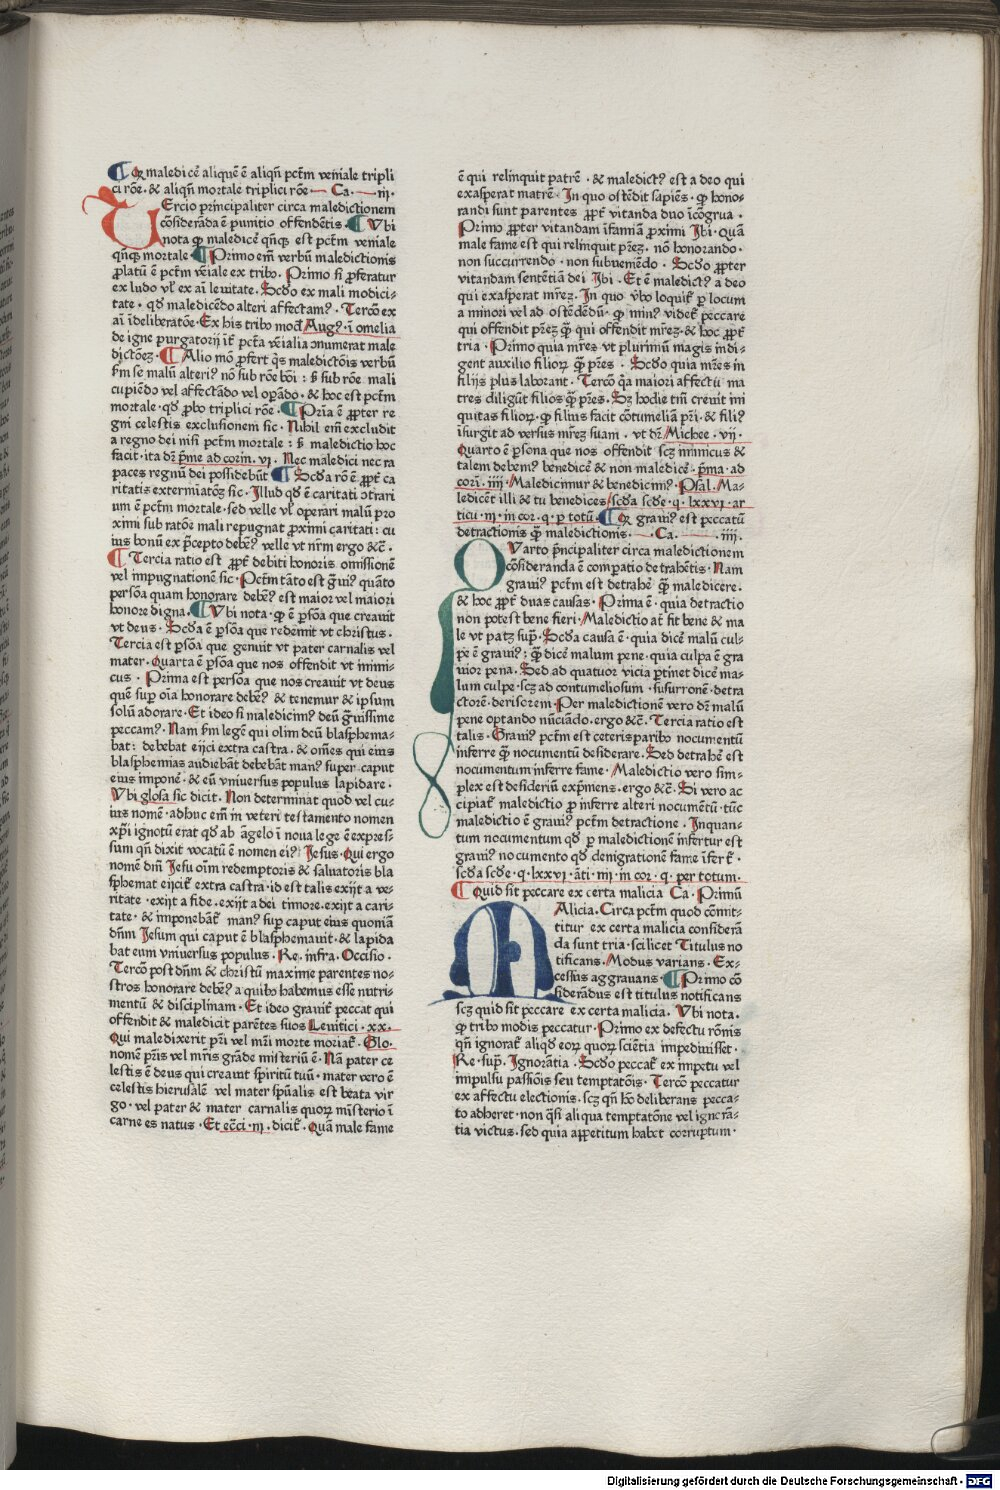 ¶ Qꝫ maledicē aliquē ē aliqñ pctm̄ veniale tripli
ci rōe · & aliqñ mortale triplici rōe — Ca. — iij.
TErcio principaliter circa maledictionem
cōsiderāda ē punitio offendētis · ¶ Vbi
nota ꝙ maledicē qñqꝫ est pctm̄ veniale
qñqꝫ mortale ¶ Primo em̄ verbū maledictionis
ꝓlatū ē pctm̄ vēiale ex tribꝰ. Primo si ꝓferatur
ex ludo vl̓ ex aī leuitate. Scd̓o ex mali modici-
tate · qd̓ maledicēdo alteri affectamꝰ. Tercō ex
aī īdeliberatōe · Ex his tribꝰ mod̓ Augꝰ. ī omelia
de igne purgatorij it̓ pctā vēialia ↄnumerat male
dictōeꝫ · ¶ Alio mō ꝓfert q̓s maledictōis verbū
ẜm se malū alteriꝰ nō sub rōe bōi : sꝫ sub rōe mali
cupiēdo vel affectādo vel opādo · & hoc est pctm̄
mortale · qd̓ ꝓbo triplici rōe · ¶ Prīa ē ꝓpter re
gni celestis exclusionem sic · Nihil em̄ excludit
a regno dei nisi pctm̄ mortale : sꝫ maledictio hoc
facit · ita dr̄ p̄me ad corin. vi. Nec maledici nec ra
paces regnū dei possidebūt ¶ Scd̓a rō ē ꝓpt̓ ca
ritatis extermiatōꝫ sic · Illud qd̓ ē caritati ↄtrari
um ē pctm̄ mortale · sed velle vl̓ operari malū pro
ximi sub ratōe mali repugnat ꝓximi caritati : cu
ius bonū ex p̄cepto debemꝰ velle vt nr̄m ergo &c̄ ·
¶ Tercia ratio est ꝓpt̓ debiti honoris omissionē
vel impugnationē sic · Pctm̄ tāto est g̓uiꝰ quāto
persōa quam honorare debemꝰ est maior vel maiori
honore digna. ¶ Vbi nota · ꝙ ē ꝑsōa que creauit
vt deus · Scd̓a ē ꝑsōa que redemit vt christus ·
Tercia est ꝑsōa que genuit vt pater carnalis vel
mater · Quarta ē ꝑsōa que nos offendit vt inimi-
cus · Prima est persōa que nos creauit vt deus
quē super oīa honorare debemꝰ & tenemur & ipsum
solū adorare · Et ideo si maledicimꝰ deū g̓uissime
peccamꝰ. Nam ẜm legē qui olim deū blasphema-
bat : debebat eijci extra castra · & om̄es qui eius
blasphemias audiebāt debebāt manꝰ super caput
eius imponē · & eū vniuersus populus lapidare ·
Vbi glosa sic dicit. Non determinat quod vel cu-
ius nomē · adhuc em̄ in veteri testamento nomen
xp̄i ignotū erat qd̓ ab āgelo ī noua lege ē expres-
sum qñ dixit vocatū ē nomen eiꝰ Jesus · Qui ergo
nomē dn̄i Jesu oīm redemptoris & saluatoris bla
sphemat eijcit̓ extra castra · id est talis exijt a ve-
ritate · exijt a fide · exijt a dei timore · exijt a cari-
tate · & imponebāt̓ manꝰ suꝑ caput eius quoniā
dn̄m Jesum qui caput ē blasphemauit · & lapida
bat eum vniuersus populus. Re. infra. Occisio ·
Tercō post dn̄m & christū maxime parentes no-
stros honorare debemꝰ a quibꝰ habemus esse nutri-
mentū & disciplinam · Et ideo grauit̓ peccat qui
offendit & maledicit parētes suos Leuitici · xx. –
Qui maledixerit pr̄i vel mr̄i morte moriat̓. Glo.
nomē pr̄is vel mr̄is grāde misteriū ē · Nā pater ce
lestis ē deus qui creauit spiritū tuū · mater vero ē
celestis hierusalē vel mater spūalis est beata vir
go · vel pater & mater carnalis quoꝝ misterio ī
carne es natus · Et ecc̄i · iij · dicit̓. Quā male fame
ē qui relinquit patrē · & maledictꝰ est a deo qui
exasperat matrē · In quo ostēdit sapiēs · ꝙ hono-
randi sunt parentes ꝓpt̓ vitanda duo īcōgrua ·
Primo ꝓpter vitandam īfamiā ꝓximi Ibi · Quā
male fame est qui relinquit pr̄eꝫ. nō honorando ·
non succurrendo · non subueniēdo · Scd̓o ꝓpter
vitandam sentētiā dei Ibi · Et ē maledictꝰ a deo
qui exasperat mr̄eꝫ. In quo vbo loquit̓ ꝑ locum
a minori vel ad ostēdēdū · ꝙ minꝰ videt̓ peccare
qui offendit pr̄eꝫ ꝙ qui offendit mr̄eꝫ · & hoc ꝓpt̓
tria · Primo quia mr̄es vt plurimū magis indi-
gent auxilio filioꝝ ꝙ pr̄es · Scd̓o quia mr̄es in
filijs plus laborant. Tercō q̓a maiori affectu ma
tres diligūt filios ꝙ pr̄es. Sꝫ hodie tm̄ creuit ini
quitas filioꝝ · ꝙ filius facit cōtumeliā pr̄i · & filiꝰ
īsurgit ad versus mr̄eꝫ suam · vt dr̄ Michee · vij ·
Quarto ē ꝑsona que nos offendit scꝫ inimicus &
talem debemꝰ benedicē & non maledicē · p̄ma · ad
cori. iiij · Maledicimur & benedicimꝰ. Psal. Ma-
ledicēt illi & tu benedices / scd̓a scd̓e · q · lxxvi · ar
ticu · iij · in cor. q · ꝑ totū. ¶ Qꝫ grauiꝰ est peccatū
detractionis ꝙ maledictionis. — Ca. — iiij.
QVarto p̄ncipaliter circa maledictionem
cōsideranda ē compatio detrahētis · Nam
grauiꝰ pctm̄ est detrahē ꝙ maledicere ·
& hoc ꝓpt̓ duas causas · Prima ē · quia detractio
non potest bene fieri · Maledictio at̓ fit bene & ma
le vt patꝫ supͣ. Scd̓a causa ē · quia dicē malū cul-
pe ē grauiꝰ : ꝙ̄ dicē malum pene · quia culpa ē gra
uior pena. Sed ad quatuor vicia ꝑtinet dicē ma-
lum culpe · scꝫ ad contumeliosum · susurronē · detra
ctorē · derisorem · Per maledictionē vero dr̄ malū
pene optando nūciādo. ergo &c̄. Tercia ratio est
talis · Grauiꝰ pctm̄ est ceteris paribꝰ nocumentū
inferre ꝙ nocumentū desiderare. Sed detrahē est
nocumentum inferre fame · Maledictio vero sim-
plex est desideriū exp̄mens. ergo &c̄. Si vero ac
cipiat̓ maledictio ꝓ inferre alteri nocumētū · tūc
maledictio ē grauiꝰ pctm̄ detractione. Inquan-
tum nocumentum qd̓ ꝑ maledictionē infertur est
grauiꝰ nocumento qd̓ denigrationē fame īfert̓ ·
scd̓a scd̓e · q · lxxvi · āti · iiij · in cor · q · per totum.
¶ Quid sit peccare ex certa malicia Ca · Primū
MAlicia. Circa pctm̄ quod cōmit-
titur ex certa malicia considerā
da sunt tria · scilicet Titulus no
tificans. Modus varians. Ex-
cessus aggrauans · ¶ Primo cō
siderādus est titulus notificans
scꝫ quid sit peccare ex certa malicia. Vbi nota.
ꝙ tribꝰ modis peccatur · Primo ex defectu rōnis
qñ ignorat̓ aliqd̓ eoꝝ quoꝝ sciētia impediuisset ·
Re · sup̄. Ignorātia · Scd̓o peccat̓ ex impetu vel
impulsu passiōis seu temptatōis · Tercō peccatur
ex affectu electionis. scꝫ qñ hō deliberans pecca-
to adheret · non q̓si aliqua temptatōne vel ignorā-
tia victus · sed quia appetitum habet corruptum ·
Digitalisierung gefördert durch die Deutsche Forschungsgemeinschaft - DFG